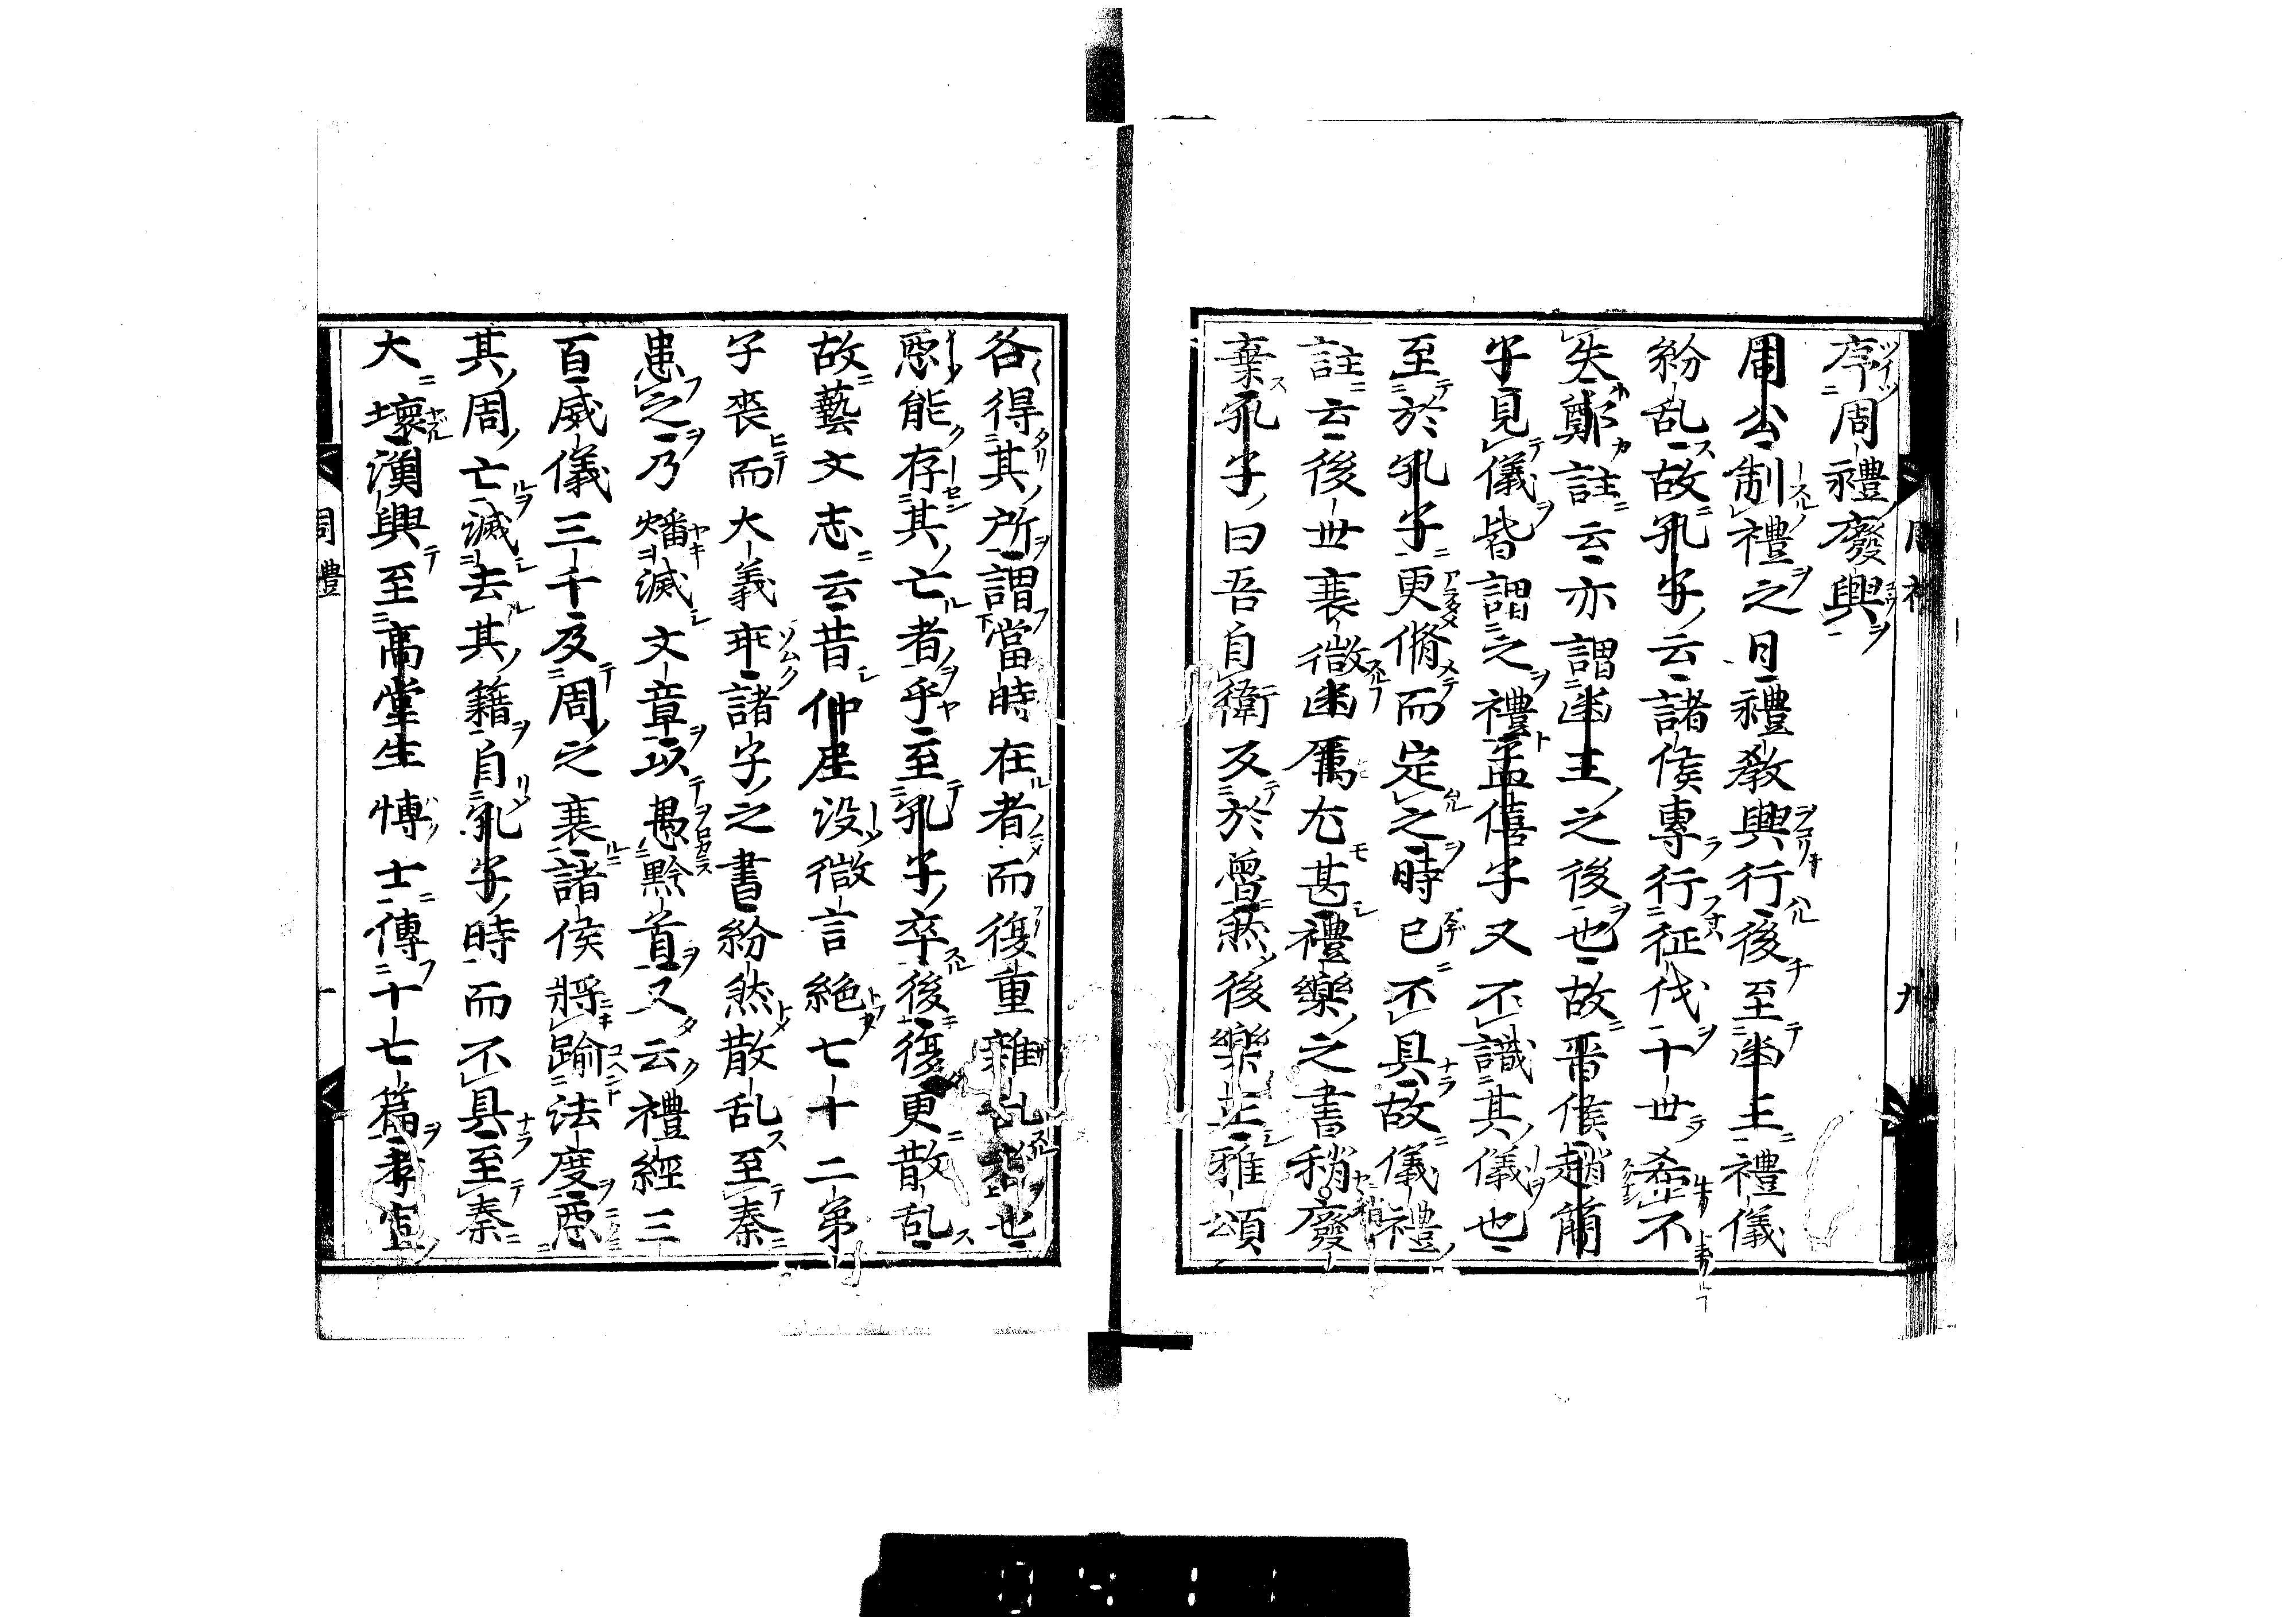 序周禮廢興
周公制禮之日禮教興行後至幽王禮儀
紛乱故孔子云諸侯專行征伐十世希不
失鄭註云亦謂幽王之後也故晋侯趙簡
子見儀皆謂之禮孟僖子又不識其儀也
至於孔子更脩而定之時已不具故儀禮
註云後世衰微幽厲尤甚禮樂之書稍廢
棄孔子曰吾自衛反於魯然後樂正雅頌
各得其所謂當時在者而復重雜乱者也
惡能存其亡者乎至孔子卒後復更散乱
故藝文志云昔仲尼没微言絶七十二弟
子喪而大義乖諸子之書紛然散乱至秦
患之乃燔滅文章以愚黔首又云禮經三
百威儀三千及周之衰諸侯將踰法度惡
其周亡滅去其籍自孔子時而不具至秦
大壞漢興至高堂生博士傳十七篇孝宣
周禮